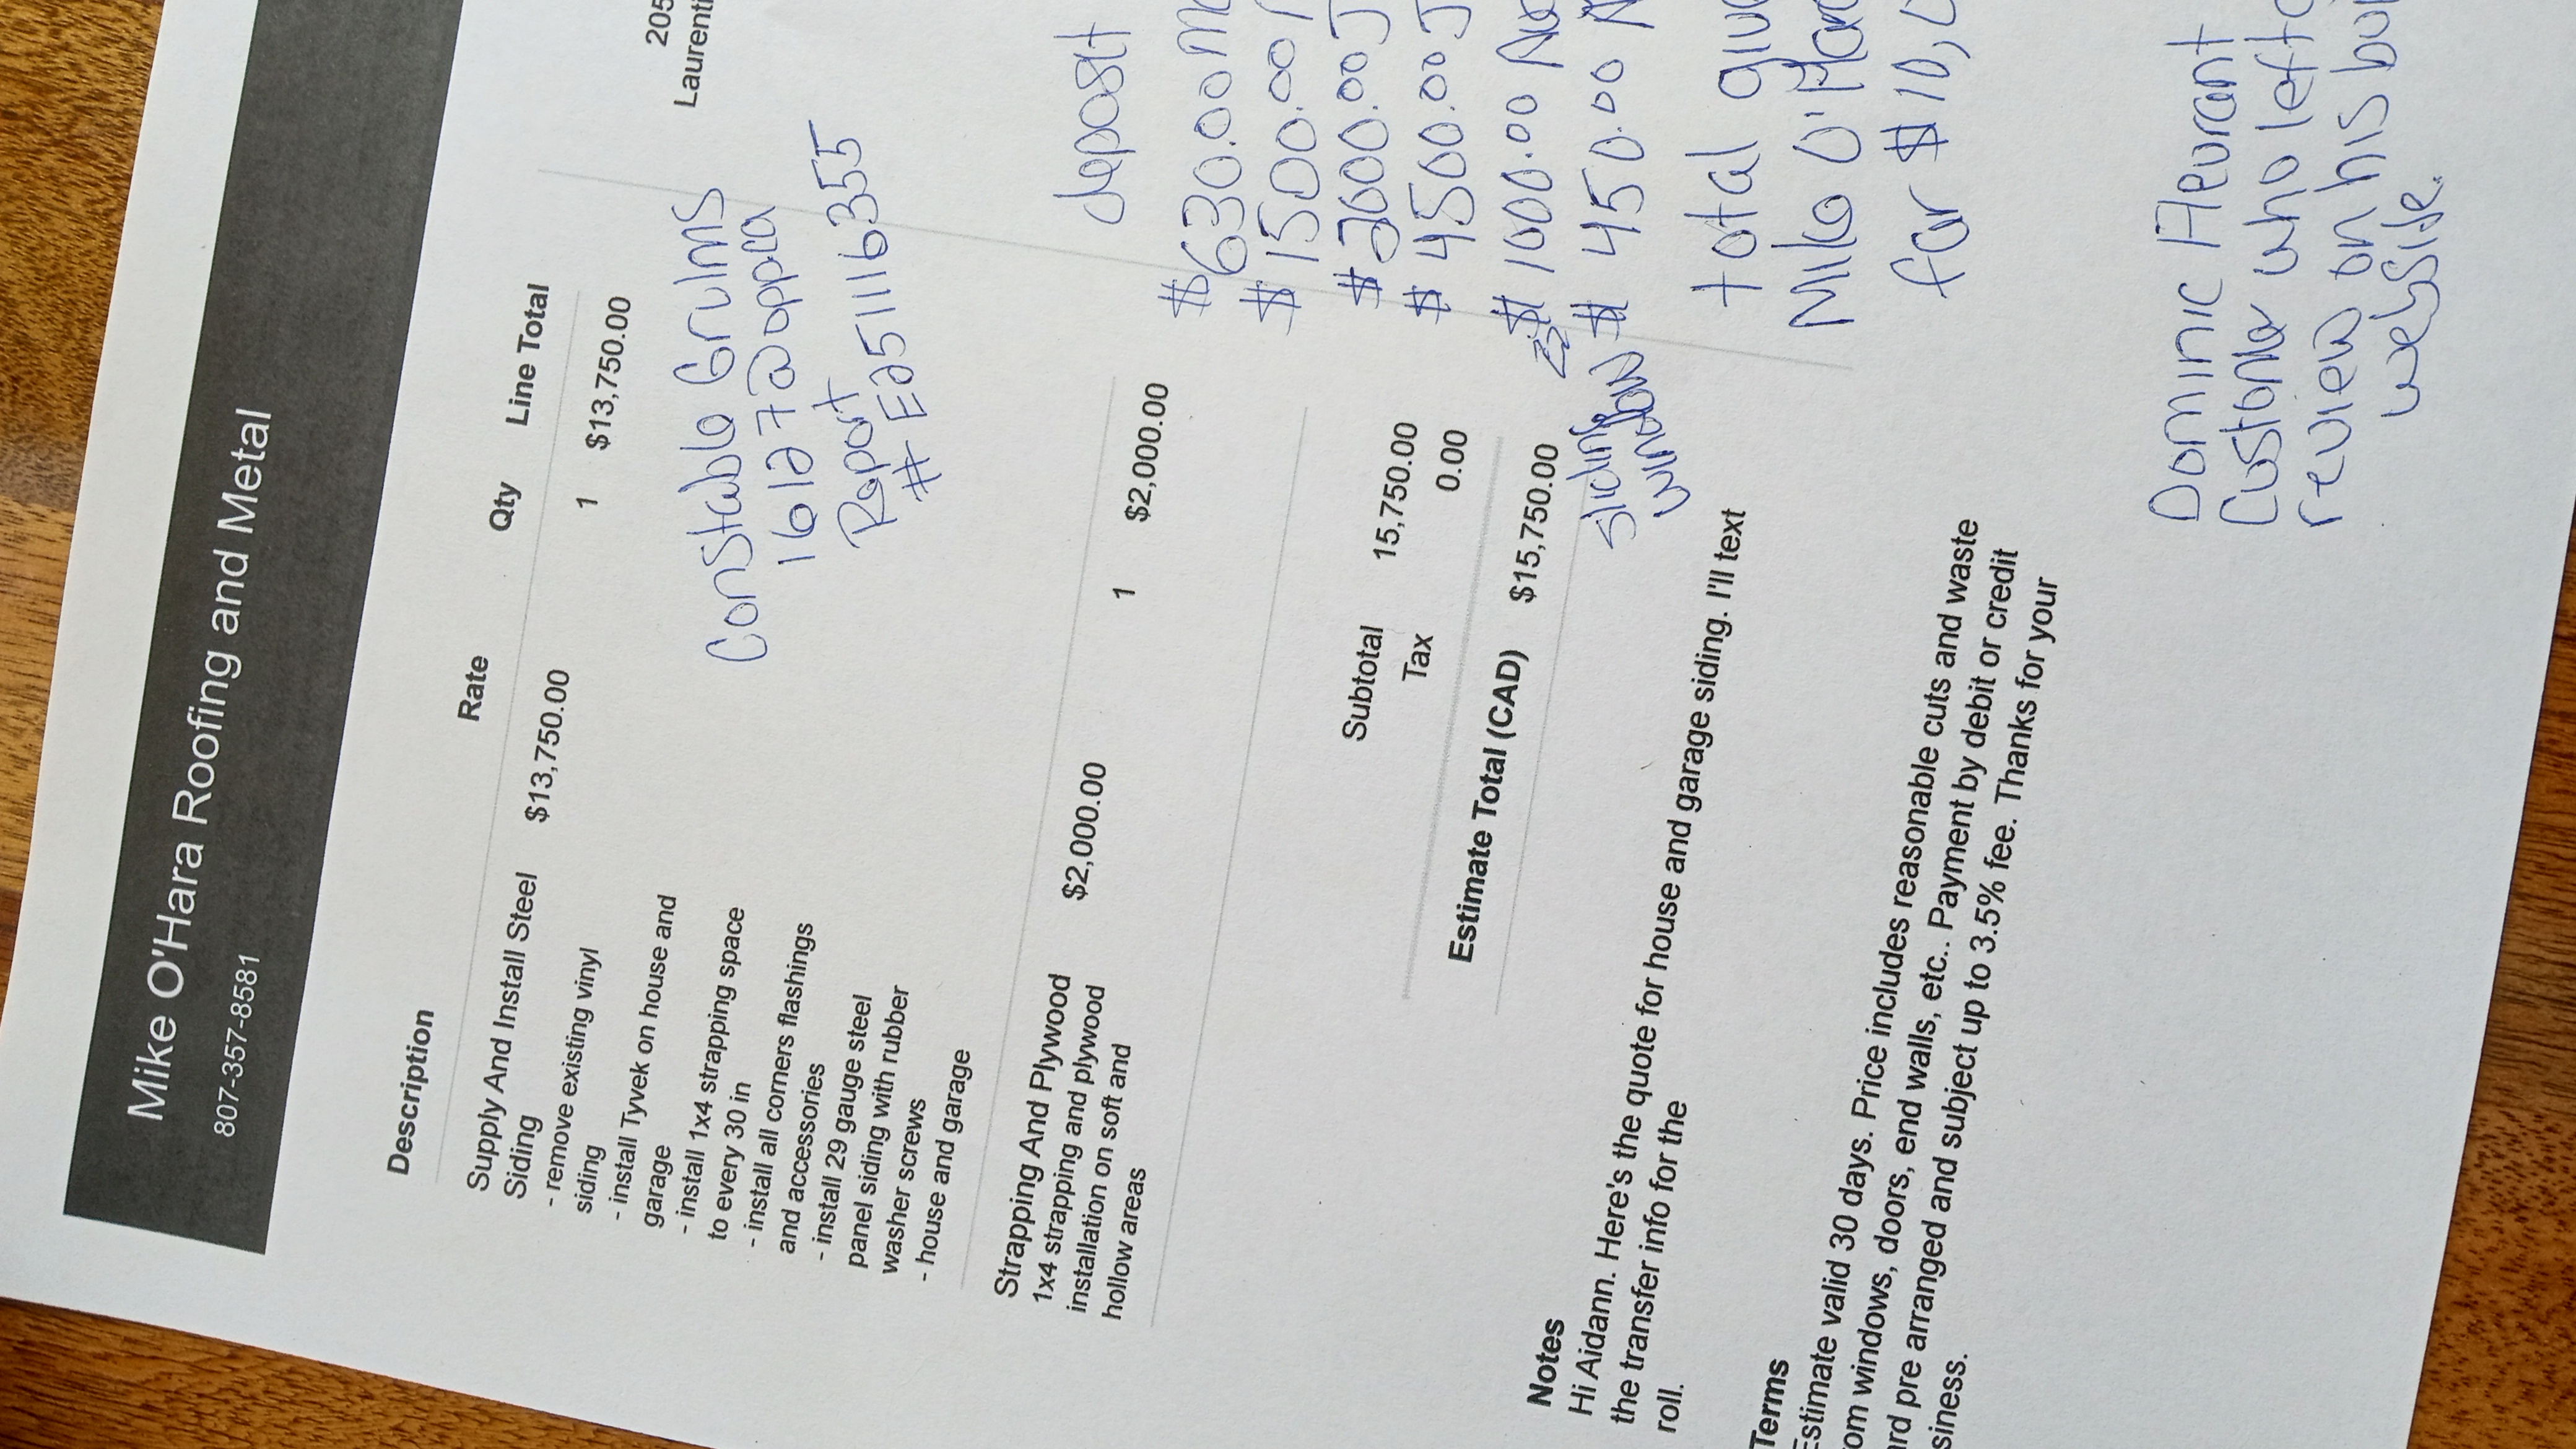 Mike O'Hara Roofing and Metal
807-357-8581
205
Laurenti
Description Rate Qty Line Total
Supply And Install Steel $13,750.00 1 $13,750.00
Siding
- remove existing vinyl
siding
- install Tyvek on house and
garage
- install 1x4 strapping space
to every 30 in
- install all corners flashings
and accessories
- install 29 gauge steel
panel siding with rubber
washer screws
- house and garage
Constable Grulms
16127@opp.ca
Report
# E251116355
Strapping And Plywood $2,000.00 1 $2,000.00
1x4 strapping and plywood
installation on soft and
hollow areas
deposit
#630.00
$1500.00
$2600.00 J
$4500.00 J
$1000.00
$450.00
sliding
window
total
Mike O'Har
for $10,
Subtotal 15,750.00
Tax 0.00
Estimate Total (CAD) $15,750.00
Notes
Hi Aidann. Here's the quote for house and garage siding. I'll text
the transfer info for the
roll.
Terms
Estimate valid 30 days. Price includes reasonable cuts and waste
om windows, doors, end walls, etc.. Payment by debit or credit
rd pre arranged and subject up to 3.5% fee. Thanks for your
siness.
Dominic
who left
review on his
website.